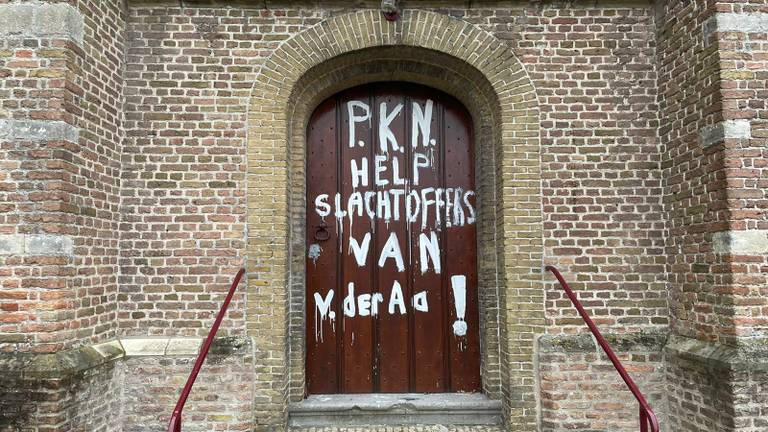 P.K.N.
HELP
SLACHTOFFERS
VAN
V. der Aa !